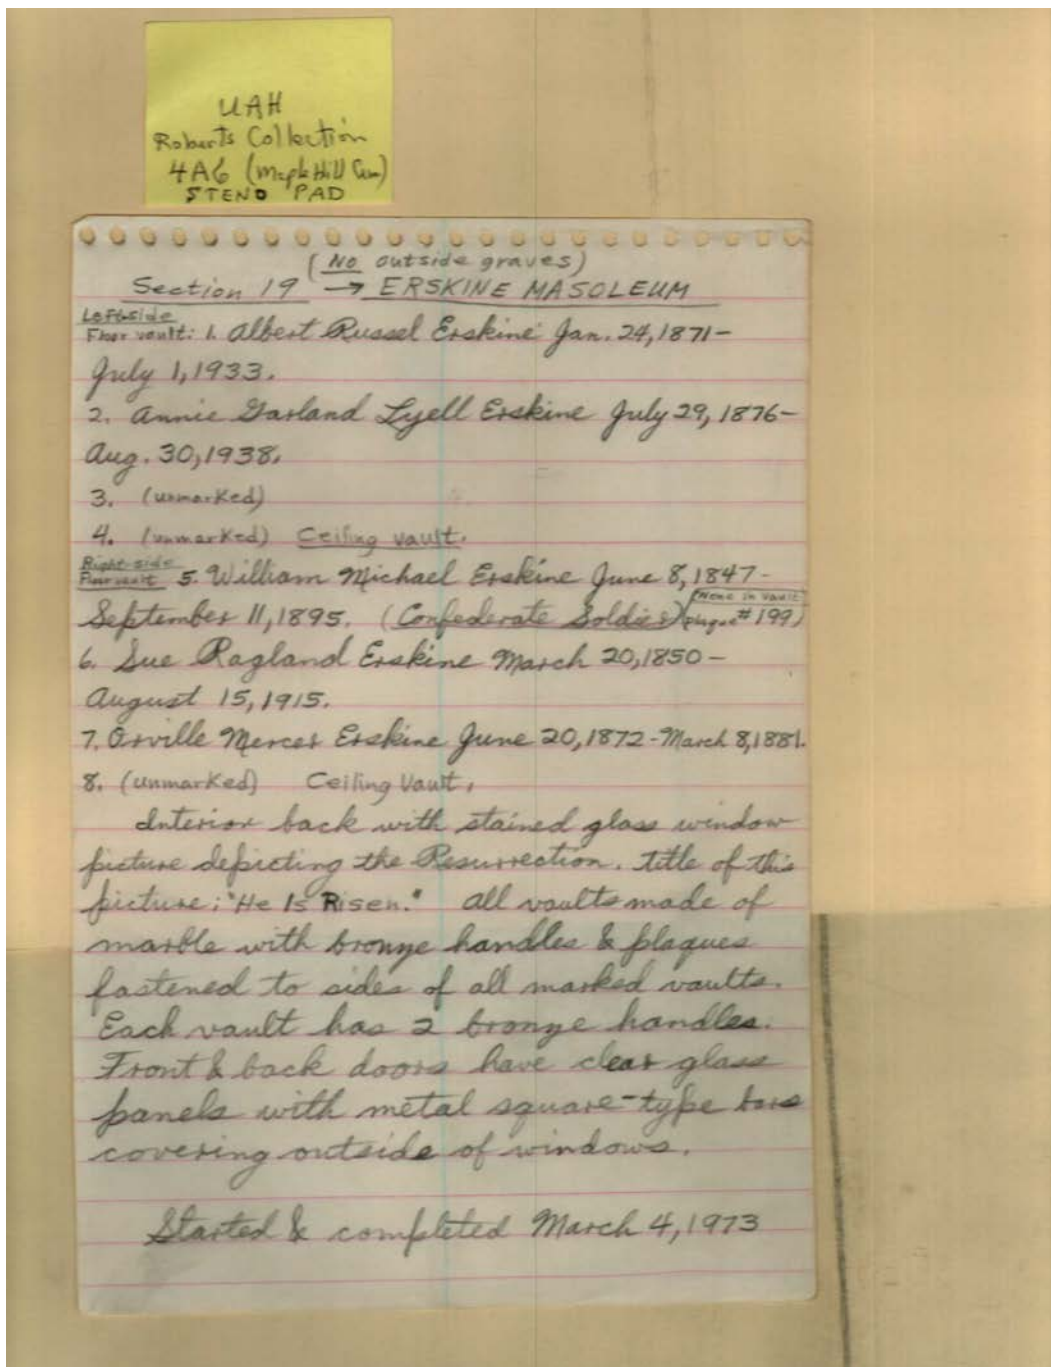 UAH
Roberts Collection
4A6 (Maple Hill Cem)
STENO PAD
(No outside graves)
Section 19 → ERSKINE MASOLEUM
Leftside
Floor vault: 1. Albert Russel Erskine Jan. 24, 1871-
July 1, 1933.
2. Annie Garland Lyell Erskine July 29, 1876-
Aug. 30, 1938.
3. (unmarked)
4. (unmarked) Ceiling vault.
Right-side
Floor vault 5. William Michael Erskine June 8, 1847-
September 11, 1895. (Confederate Soldier) (None in vault plaque #199)
6. Sue Ragland Erskine March 20, 1850-
August 15, 1915.
7. Orville Mercer Erskine June 20, 1872-March 8, 1881.
8. (unmarked) Ceiling Vault.
Interior back with stained glass window
picture depicting the Resurrection. title of this
picture: "He Is Risen." All vaults made of
marble with bronze handles & plaques
fastened to sides of all marked vaults.
Each vault has 2 bronze handles.
Front & back doors have clear glass
panels with metal square-type bars
covering outside of windows.
Started & completed March 4, 1973